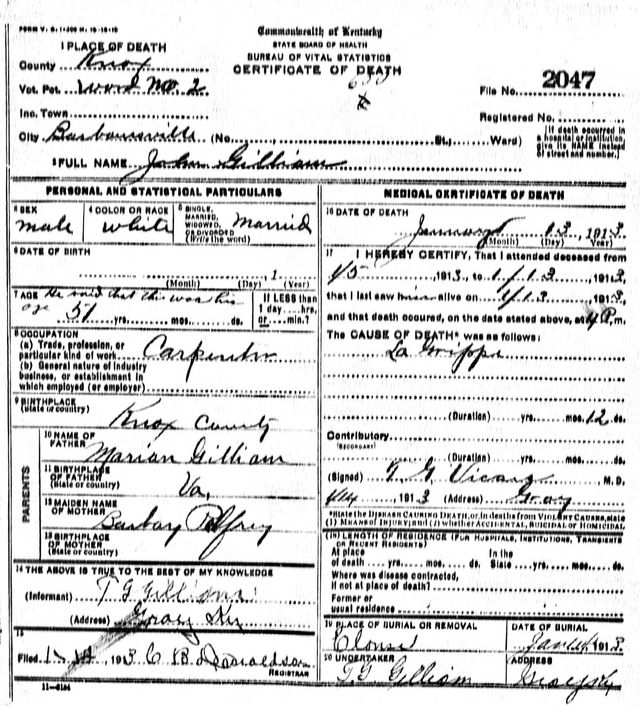 FORM V. S. 1-300 M. 10-10-10
Commonwealth of Kentucky
STATE BOARD OF HEALTH
BUREAU OF VITAL STATISTICS
CERTIFICATE OF DEATH
1 PLACE OF DEATH
County Knox
Vot. Pct. Word No. 2
Inc. Town
City Barboursville (No. St.; Ward)
File No. 2047
Registered No.
[If death occurred in a hospital or institution, give its NAME instead of street and number.]
2 FULL NAME John Gilliam
PERSONAL AND STATISTICAL PARTICULARS
3 SEX male
4 COLOR OR RACE white
5 SINGLE, MARRIED, WIDOWED, OR DIVORCED (Write the word) Married
6 DATE OF BIRTH , 1
(Month) (Day) (Year)
7 AGE He said that this was his age 51 yrs. mos. ds.
If LESS than 1 day hrs. or min.?
8 OCCUPATION
(a) Trade, profession, or particular kind of work Carpenter
(b) General nature of industry business, or establishment in which employed (or employer)
9 BIRTHPLACE (State or country) Knox County
PARENTS
10 NAME OF FATHER Marian Gilliam
11 BIRTHPLACE OF FATHER (State or country) Va,
12 MAIDEN NAME OF MOTHER Barbary
13 BIRTHPLACE OF MOTHER (State or country)
14 THE ABOVE IS TRUE TO THE BEST OF MY KNOWLEDGE
(Informant) T G Gilliam
(Address) Gray Ky
15
Filed 1 1913 C B Donaldson
REGISTRAR
11-3184
MEDICAL CERTIFICATE OF DEATH
16 DATE OF DEATH
January 13, 1913
(Month) (Day) Year)
17 I HEREBY CERTIFY, That I attended deceased from
1/5 1913, to 1/13 1913,
that I last saw him alive on 1/13 1913
and that death occured, on the date stated above, at 4 P m.
The CAUSE OF DEATH* was as follows:
La Grippe
(Duration) yrs. mos. 12 ds.
Contributory
(SECONDARY)
(Duration) yrs. mos. ds.
(Signed) T G M. D.
1/14 1913 (Address) Gray
*State the DISEASE CAUSING DEATH, or in deaths from VIOLENT CAUSES, state
(1) MEANS OF INJURY; and (2) whether ACCIDENTAL, SUICIDAL or HOMICIDAL.
(18) LENGTH OF RESIDENCE (FOR HOSPITALS, INSTITUTIONS, TRANSIENTS OR RECENT RESIDENTS)
At place of death yrs. mos. ds. In the State yrs. mos. ds.
Where was disease contracted, if not at place of death?
Former or usual residence
19 PLACE OF BURIAL OR REMOVAL
DATE OF BURIAL
1913
20 UNDERTAKER
T. G. Gilliam
ADDRESS
Gray Ky